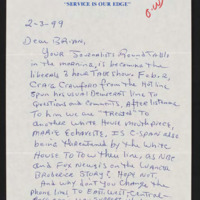 "SERVICE IS OUR EDGE"
2-3-99
Dear Brian,
Your Journalists Roundtable
in the morning, is becoming the
liberals 2 hour talk show. Feb. 2,
Craig Crawford from the Hotline
spun his usual Democrat line to
Questions and Comments, after listening
to him we are "treated" to
another White House mouthpiece,
Mark . Is C-Span also
being threatened by the White
House to tow their line as NBC
and Fox News in the Juanita
Broderick story? I hope not.
And why don't you change the
phone line to East-West-Central